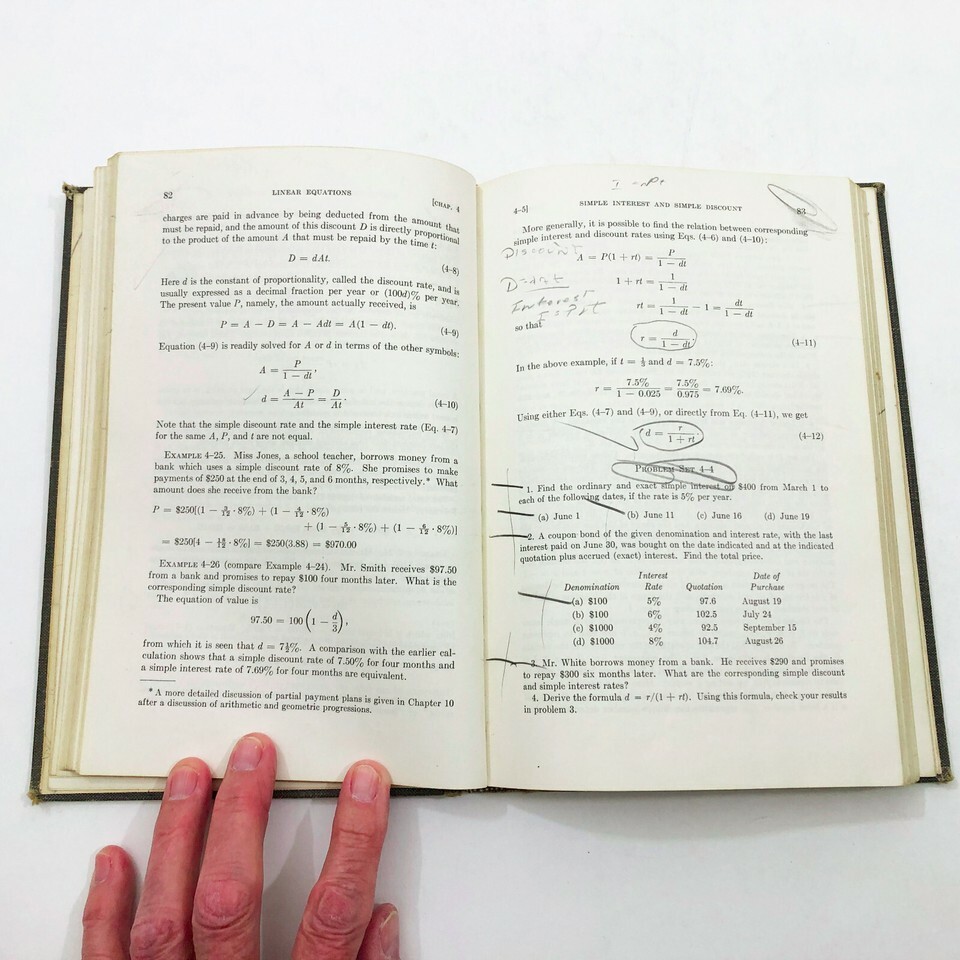 82
LINEAR EQUATIONS
[CHAP. 4
charges are paid in advance by being deducted from the amount that
must be repaid, and the amount of this discount D is directly proportional
to the product of the amount A that must be repaid by the time t:
D = dAt.
(4-8)
Here d is the constant of proportionality, called the discount rate, and is
usually expressed as a decimal fraction per year or (100d)% per year.
The present value P, namely, the amount actually received, is
P = A − D = A − Adt = A(1 − dt).
(4-9)
Equation (4-9) is readily solved for A or d in terms of the other symbols:
A = P / (1 − dt),
d = (A − P) / At = D / At.
(4-10)
Note that the simple discount rate and the simple interest rate (Eq. 4-7)
for the same A, P, and t are not equal.
EXAMPLE 4-25. Miss Jones, a school teacher, borrows money from a
bank which uses a simple discount rate of 8%. She promises to make
payments of $250 at the end of 3, 4, 5, and 6 months, respectively.* What
amount does she receive from the bank?
P = $250[(1 − 3/12 · 8%) + (1 − 4/12 · 8%)
+ (1 − 5/12 · 8%) + (1 − 6/12 · 8%)]
= $250[4 − 18/12 · 8%] = $250(3.88) = $970.00
EXAMPLE 4-26 (compare Example 4-24). Mr. Smith receives $97.50
from a bank and promises to repay $100 four months later. What is the
corresponding simple discount rate?
The equation of value is
97.50 = 100 (1 − d/3),
from which it is seen that d = 7½%. A comparison with the earlier cal-
culation shows that a simple discount rate of 7.50% for four months and
a simple interest rate of 7.69% for four months are equivalent.
* A more detailed discussion of partial payment plans is given in Chapter 10
after a discussion of arithmetic and geometric progressions.
I = rPt
4-5]
SIMPLE INTEREST AND SIMPLE DISCOUNT
83
More generally, it is possible to find the relation between corresponding
simple interest and discount rates using Eqs. (4-6) and (4-10):
Discount
A = P(1 + rt) = P / (1 − dt)
D=dAt
1 + rt = 1 / (1 − dt)
Interest
I = Prt
rt = 1 / (1 − dt) − 1 = dt / (1 − dt)
so that
r = d / (1 − dt).
(4-11)
In the above example, if t = ⅓ and d = 7.5%:
r = 7.5% / (1 − 0.025) = 7.5% / 0.975 = 7.69%.
Using either Eqs. (4-7) and (4-9), or directly from Eq. (4-11), we get
d = r / (1 + rt).
(4-12)
PROBLEM SET 4-4
1. Find the ordinary and exact simple interest on $400 from March 1 to
each of the following dates, if the rate is 5% per year.
(a) June 1 (b) June 11 (c) June 16 (d) June 19
2. A coupon bond of the given denomination and interest rate, with the last
interest paid on June 30, was bought on the date indicated and at the indicated
quotation plus accrued (exact) interest. Find the total price.
Interest Date of
Denomination Rate Quotation Purchase
(a) $100 5% 97.6 August 19
(b) $100 6% 102.5 July 24
(c) $1000 4% 92.5 September 15
(d) $1000 8% 104.7 August 26
3. Mr. White borrows money from a bank. He receives $290 and promises
to repay $300 six months later. What are the corresponding simple discount
and simple interest rates?
4. Derive the formula d = r/(1 + rt). Using this formula, check your results
in problem 3.